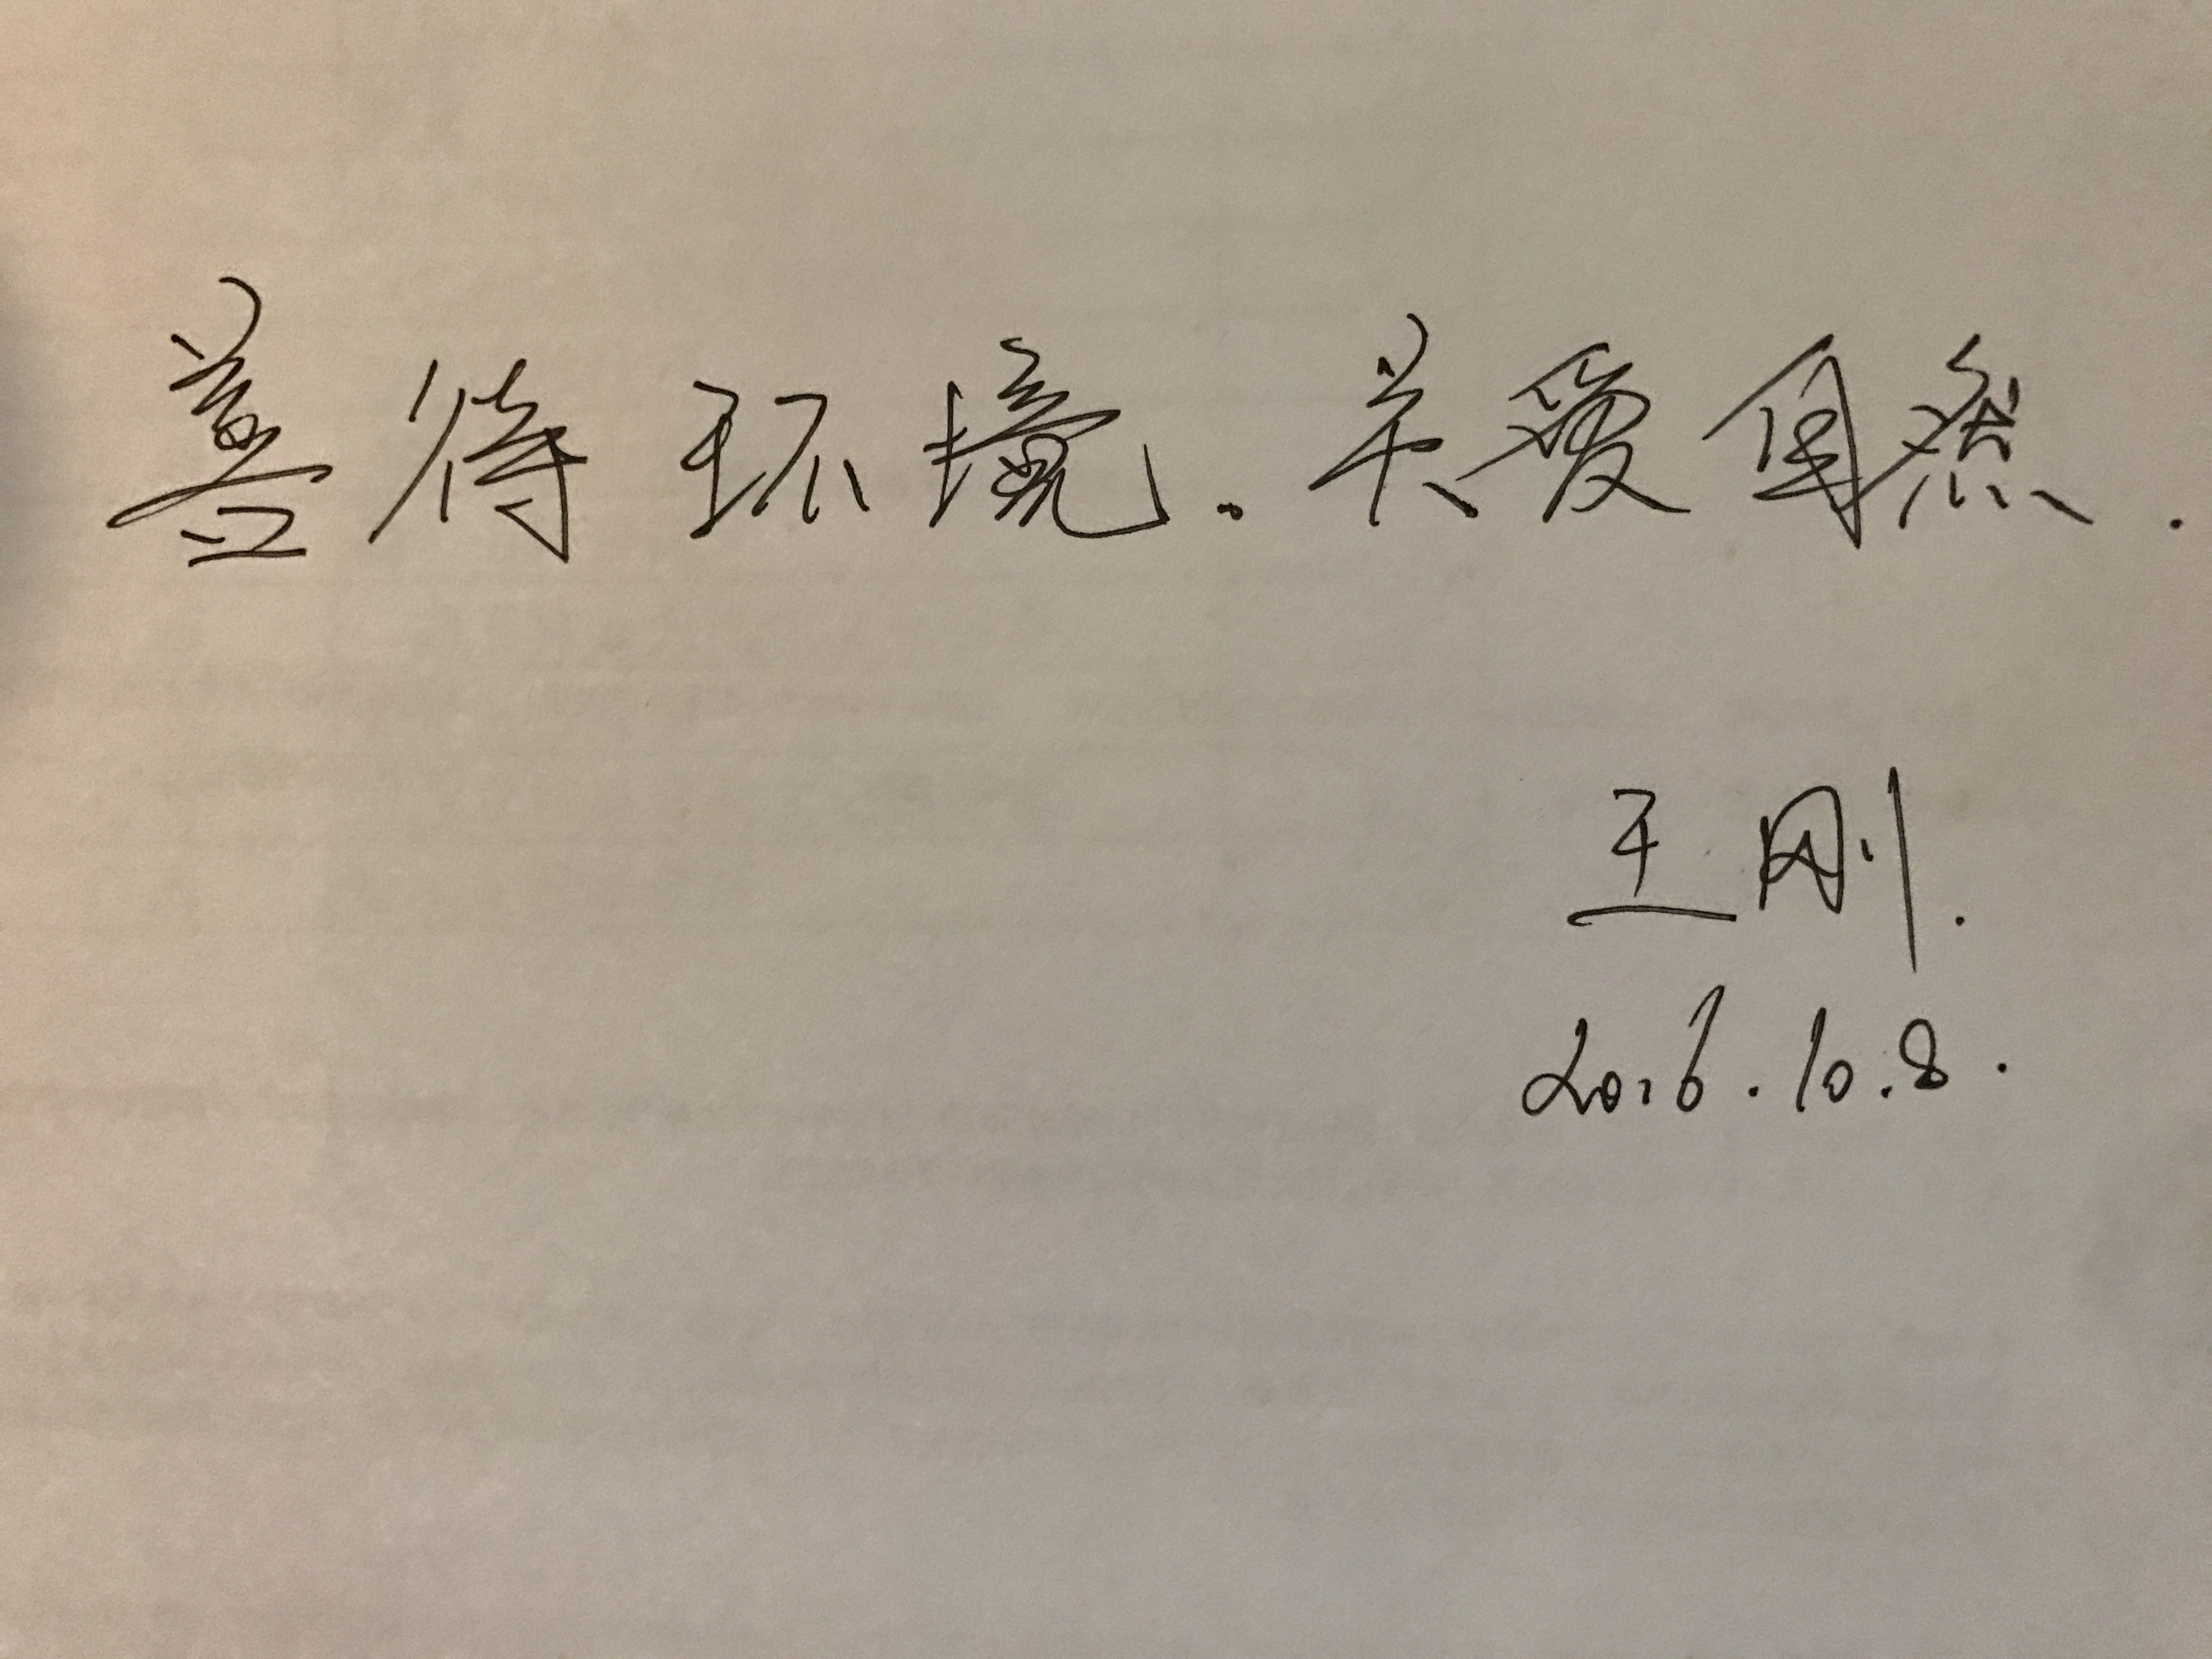 善待环境.关爱自然.
王刚.
2016.10.8.